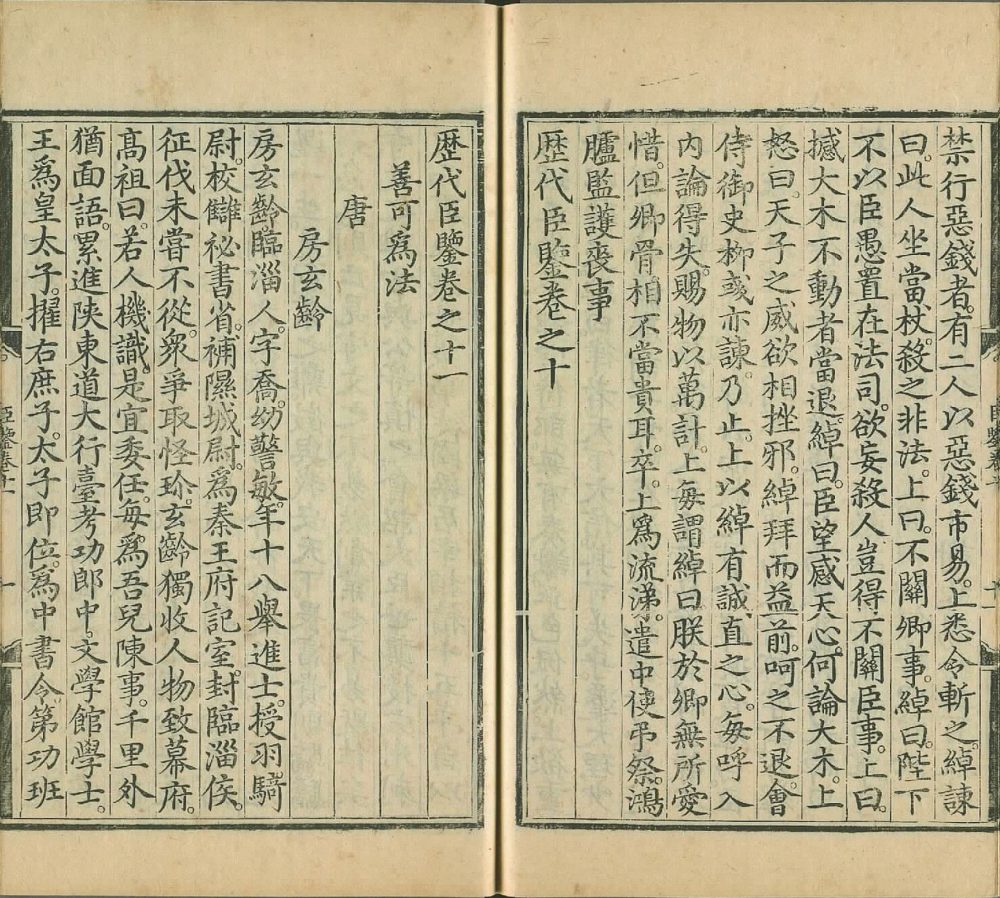 禁行惡錢者。有二人以惡錢市易。上悉令斬之。綽諫
曰。此人坐當杖。殺之非法。上曰。不關卿事。綽曰。陛下
不以臣愚置在法司。欲妄殺人。豈得不關臣事。上曰。
撼大木不動者當退。綽曰。臣望感天心。何論大木。上
怒曰。天子之威欲相挫邪。綽拜而益前。呵之不退。會
侍御史柳彧亦諫。乃止。上以綽有誠直之心。每呼入
內論得失。賜物以萬計。上每謂綽曰朕於卿無所愛
惜。但卿骨相不當貴耳。卒。上爲流涕。遣中使弔祭。鴻
臚監護喪事
歷代臣鑒卷之十
歷代臣鑒卷之十一
善可爲法
唐
房玄齡
房玄齡臨淄人。字喬。幼警敏。年十八舉進士。授羽騎
尉。校讎祕書省。補隰城尉。爲秦王府記室。封臨淄侯。
征伐未嘗不從。衆爭取怪珍。玄齡獨收人物致幕府。
高祖曰。若人機識。是宜委任。每爲吾兒陳事。千里外
猶面語。累進陝東道大行臺考功郎中。文學館學士。
王爲皇太子。擢右庶子。太子即位。爲中書令。第功班
臣鑒卷十一
一